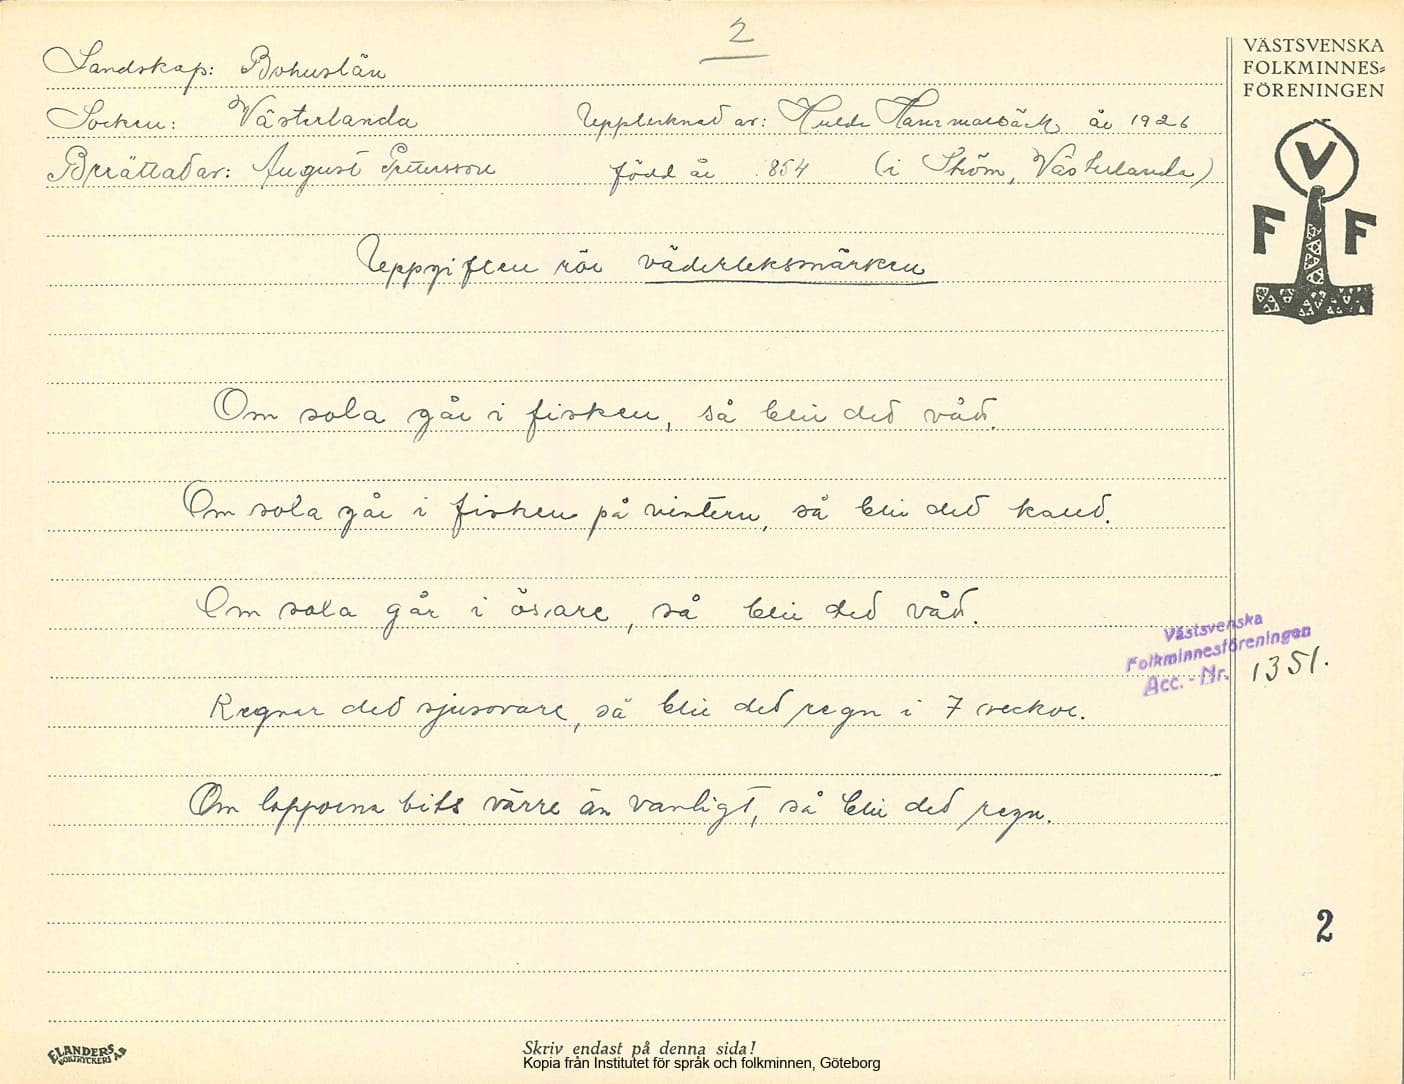 2
VÄSTSVENSKA
FOLKMINNES=
FÖRENINGEN
Landskap: Bohuslän
Socken: Västerlanda Upptecknad av: Hulda Hammarbäck år 1926
Berättad av: August Pettersson född år 1854 (i Ström, Västerlanda)
V
F F
Uppgiften rör väderleksmärken
Om sola går i fisken, så blir ded våd.
Om sola går i fisken på vintern, så blir ded kalld.
Om sola går i ösare, så blir ded våd.
Västsvenska
Folkminnesföreningen
Acc.-Nr. 1351.
Regnar ded sjusovare, så blir ded regn i 7 veckor.
Om lopporna bits värre än vanligt, så blir ded regn.
2
ELANDERS
BOKTRYCKERI A.B
Skriv endast på denna sida!
Kopia från Institutet för språk och folkminnen, Göteborg